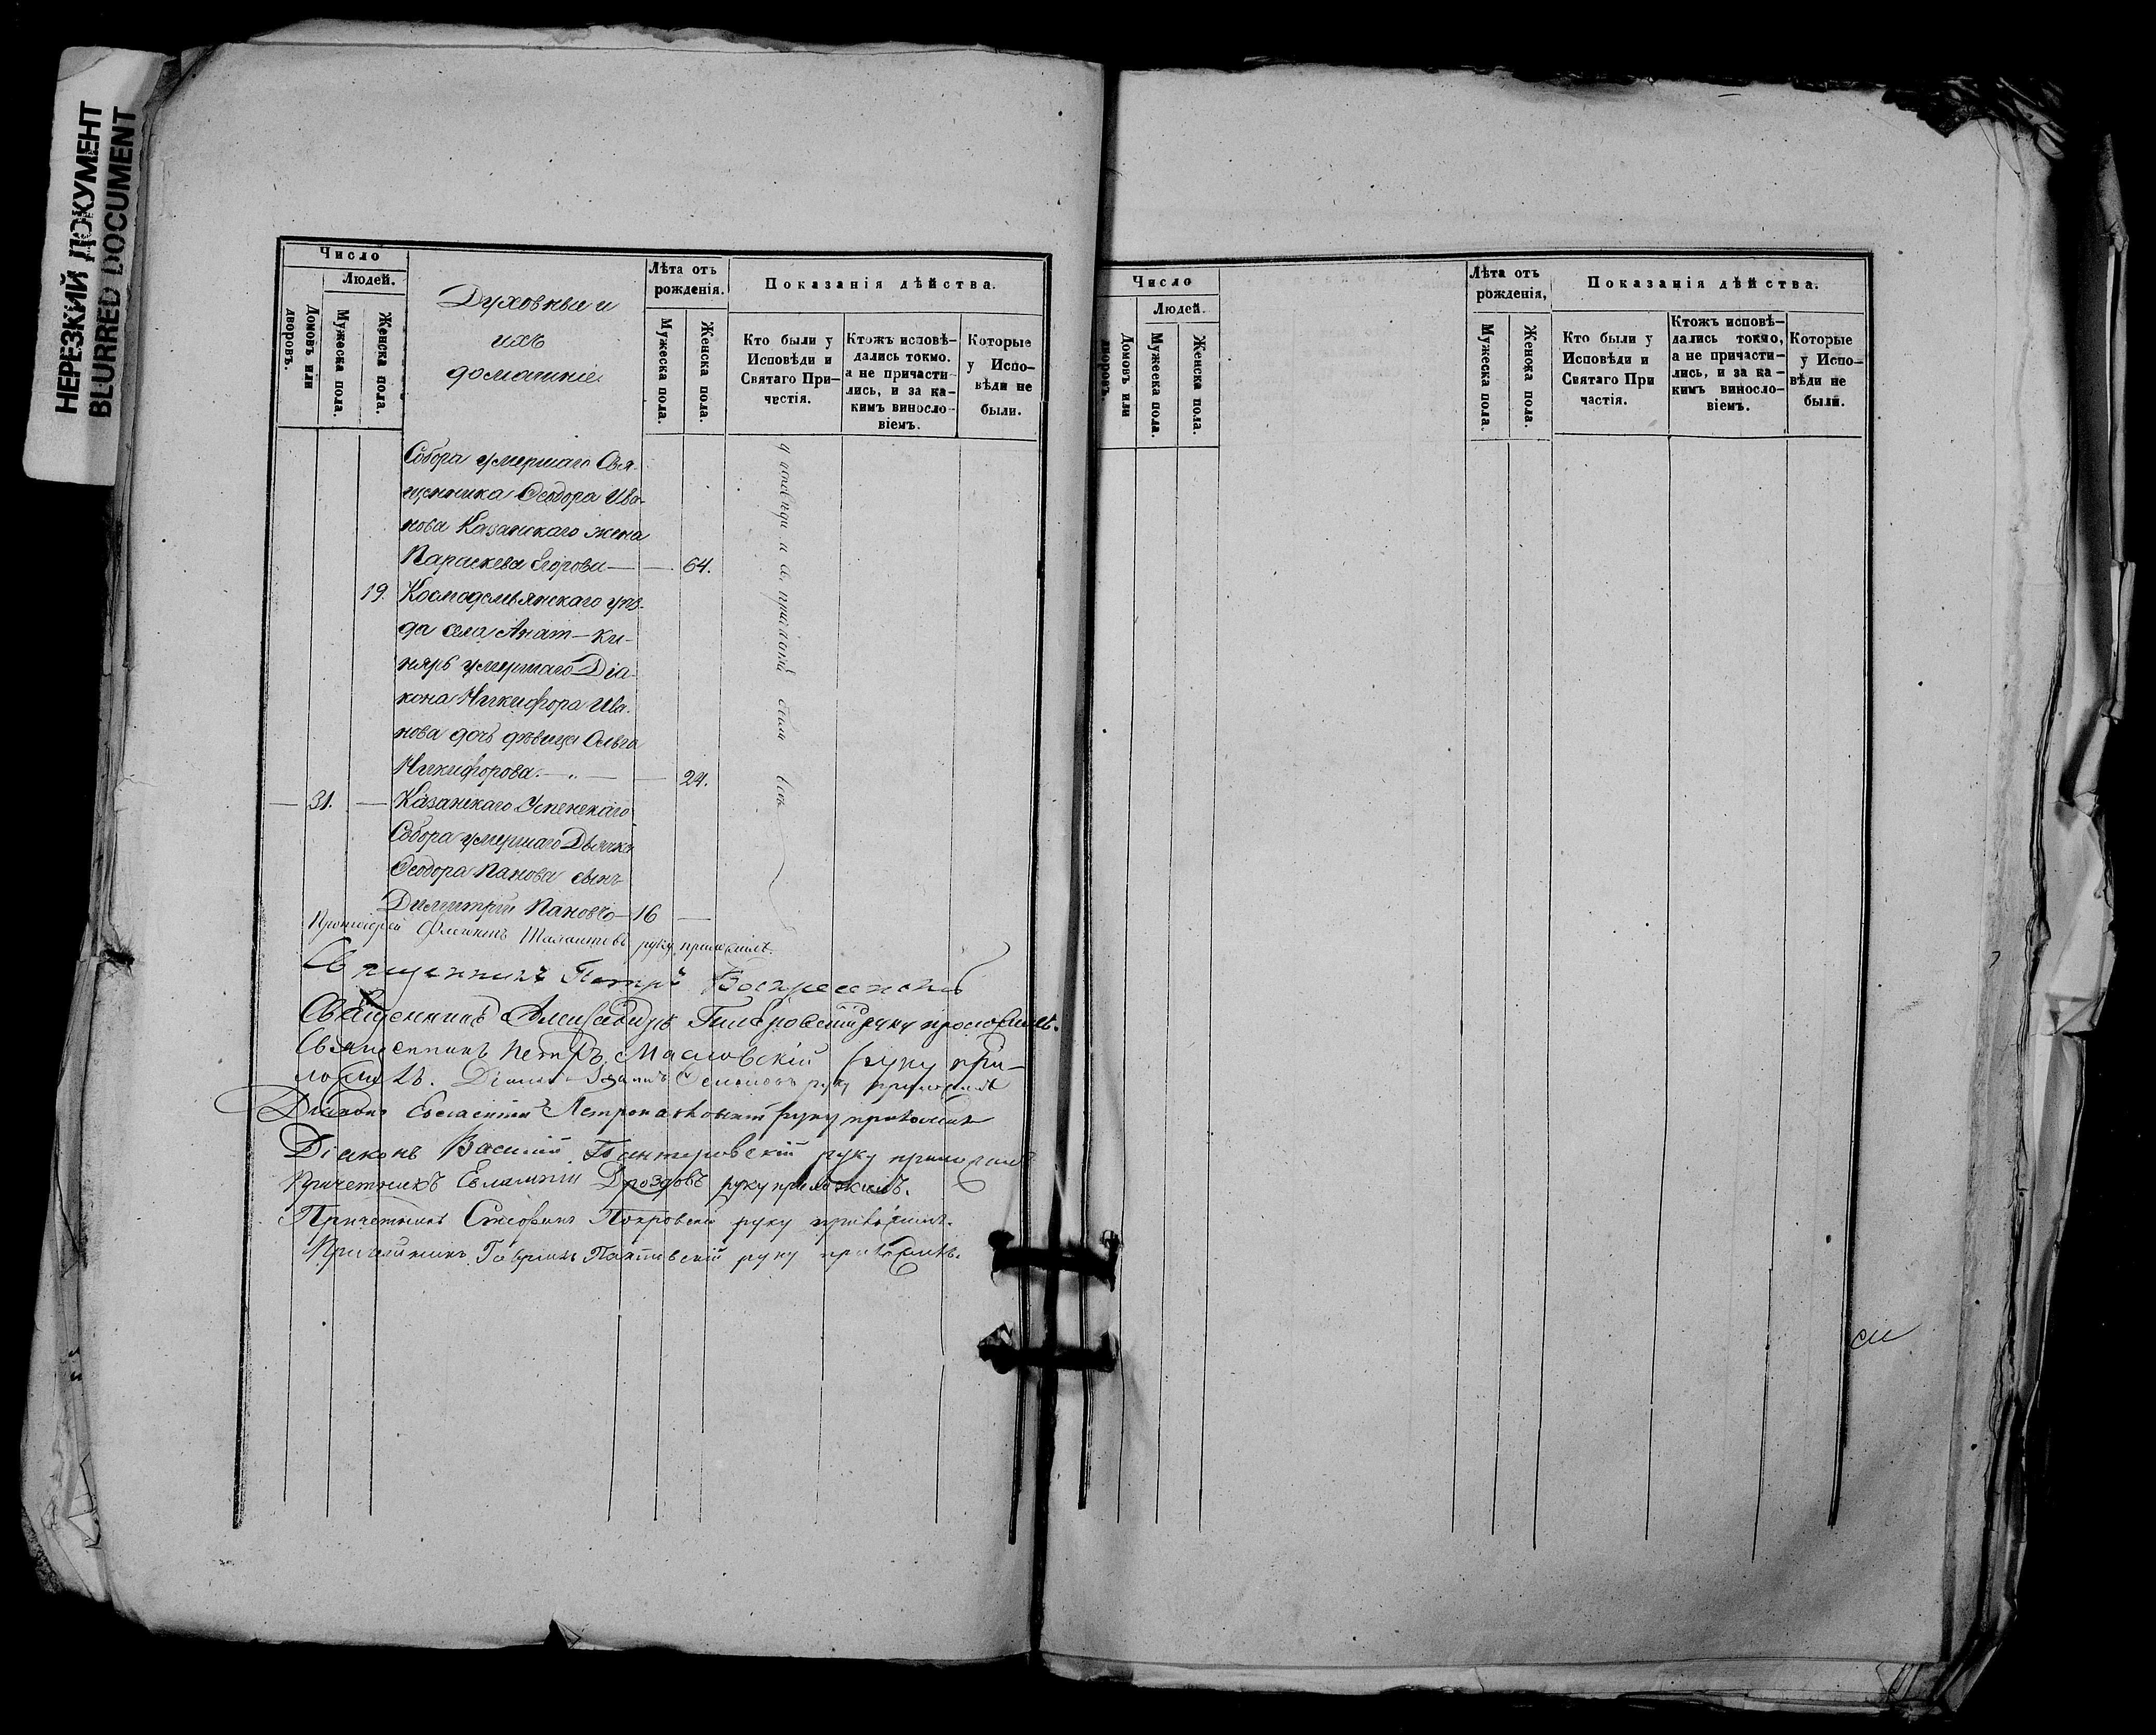 НЕРЕЗКИЙ ДОКУМЕНТ
BLURRED DOCUMENT
Число
Людей.
Домовъ или дворовъ.
Мужеска пола.
Женска пола.
Духовныи и
ихъ
домашніе
Лѣта отъ
рожденія.
Мужеска пола.
Женска пола.
Показанія дѣйства.
Кто были у
Исповѣди и
Святаго При-
частія.
Ктожъ исповѣ-
дались токмо.
а не причасти-
лись, и за ка-
кимъ виносло-
віемъ.
Которые
у Испо-
вѣди не
были.
Собора умершаго Свя-
щенника Ѳеодора Ива-
нова Казанскаго жена
Параскева Егорова — — 64.
19. Космодемьянскаго уѣз-
да села Анат-Ки-
няръ умершаго Діа-
кона Никифора Ива-
нова дочь дѣвица Ольга
Никифорова. — „ — — 24.
— 31. — Казанскаго Успенскаго
Собора умершаго Дьячка
Ѳеодора Панова сынъ
Димитрій Пановъ — 16 —
Протоіерей руку приложилъ.
Священникъ Петръ
Священникъ руку приложилъ.
Священникъ Петръ Масловскій руку при-
ложилъ. Діаконъ руку приложилъ
Діаконъ руку приложилъ
Діаконъ Василій руку приложилъ
Причетникъ Евлампій Дроздовъ руку приложилъ.
Причетникъ Покровскій руку приложилъ.
Причетникъ Гавріилъ руку приложилъ.
Число
Людей.
Домовъ или дворовъ.
Мужеска пола.
Женска пола.
Лѣта отъ
рожденія,
Мужеска пола.
Женска пола.
Показанія дѣйства.
Кто были у
Исповѣди и
Святаго При
частія.
Ктожъ исповѣ-
дались токмо,
а не причасти-
лись, и за ка-
кимъ виносло-
віемъ.
Которые
у Испо-
вѣди не
были.